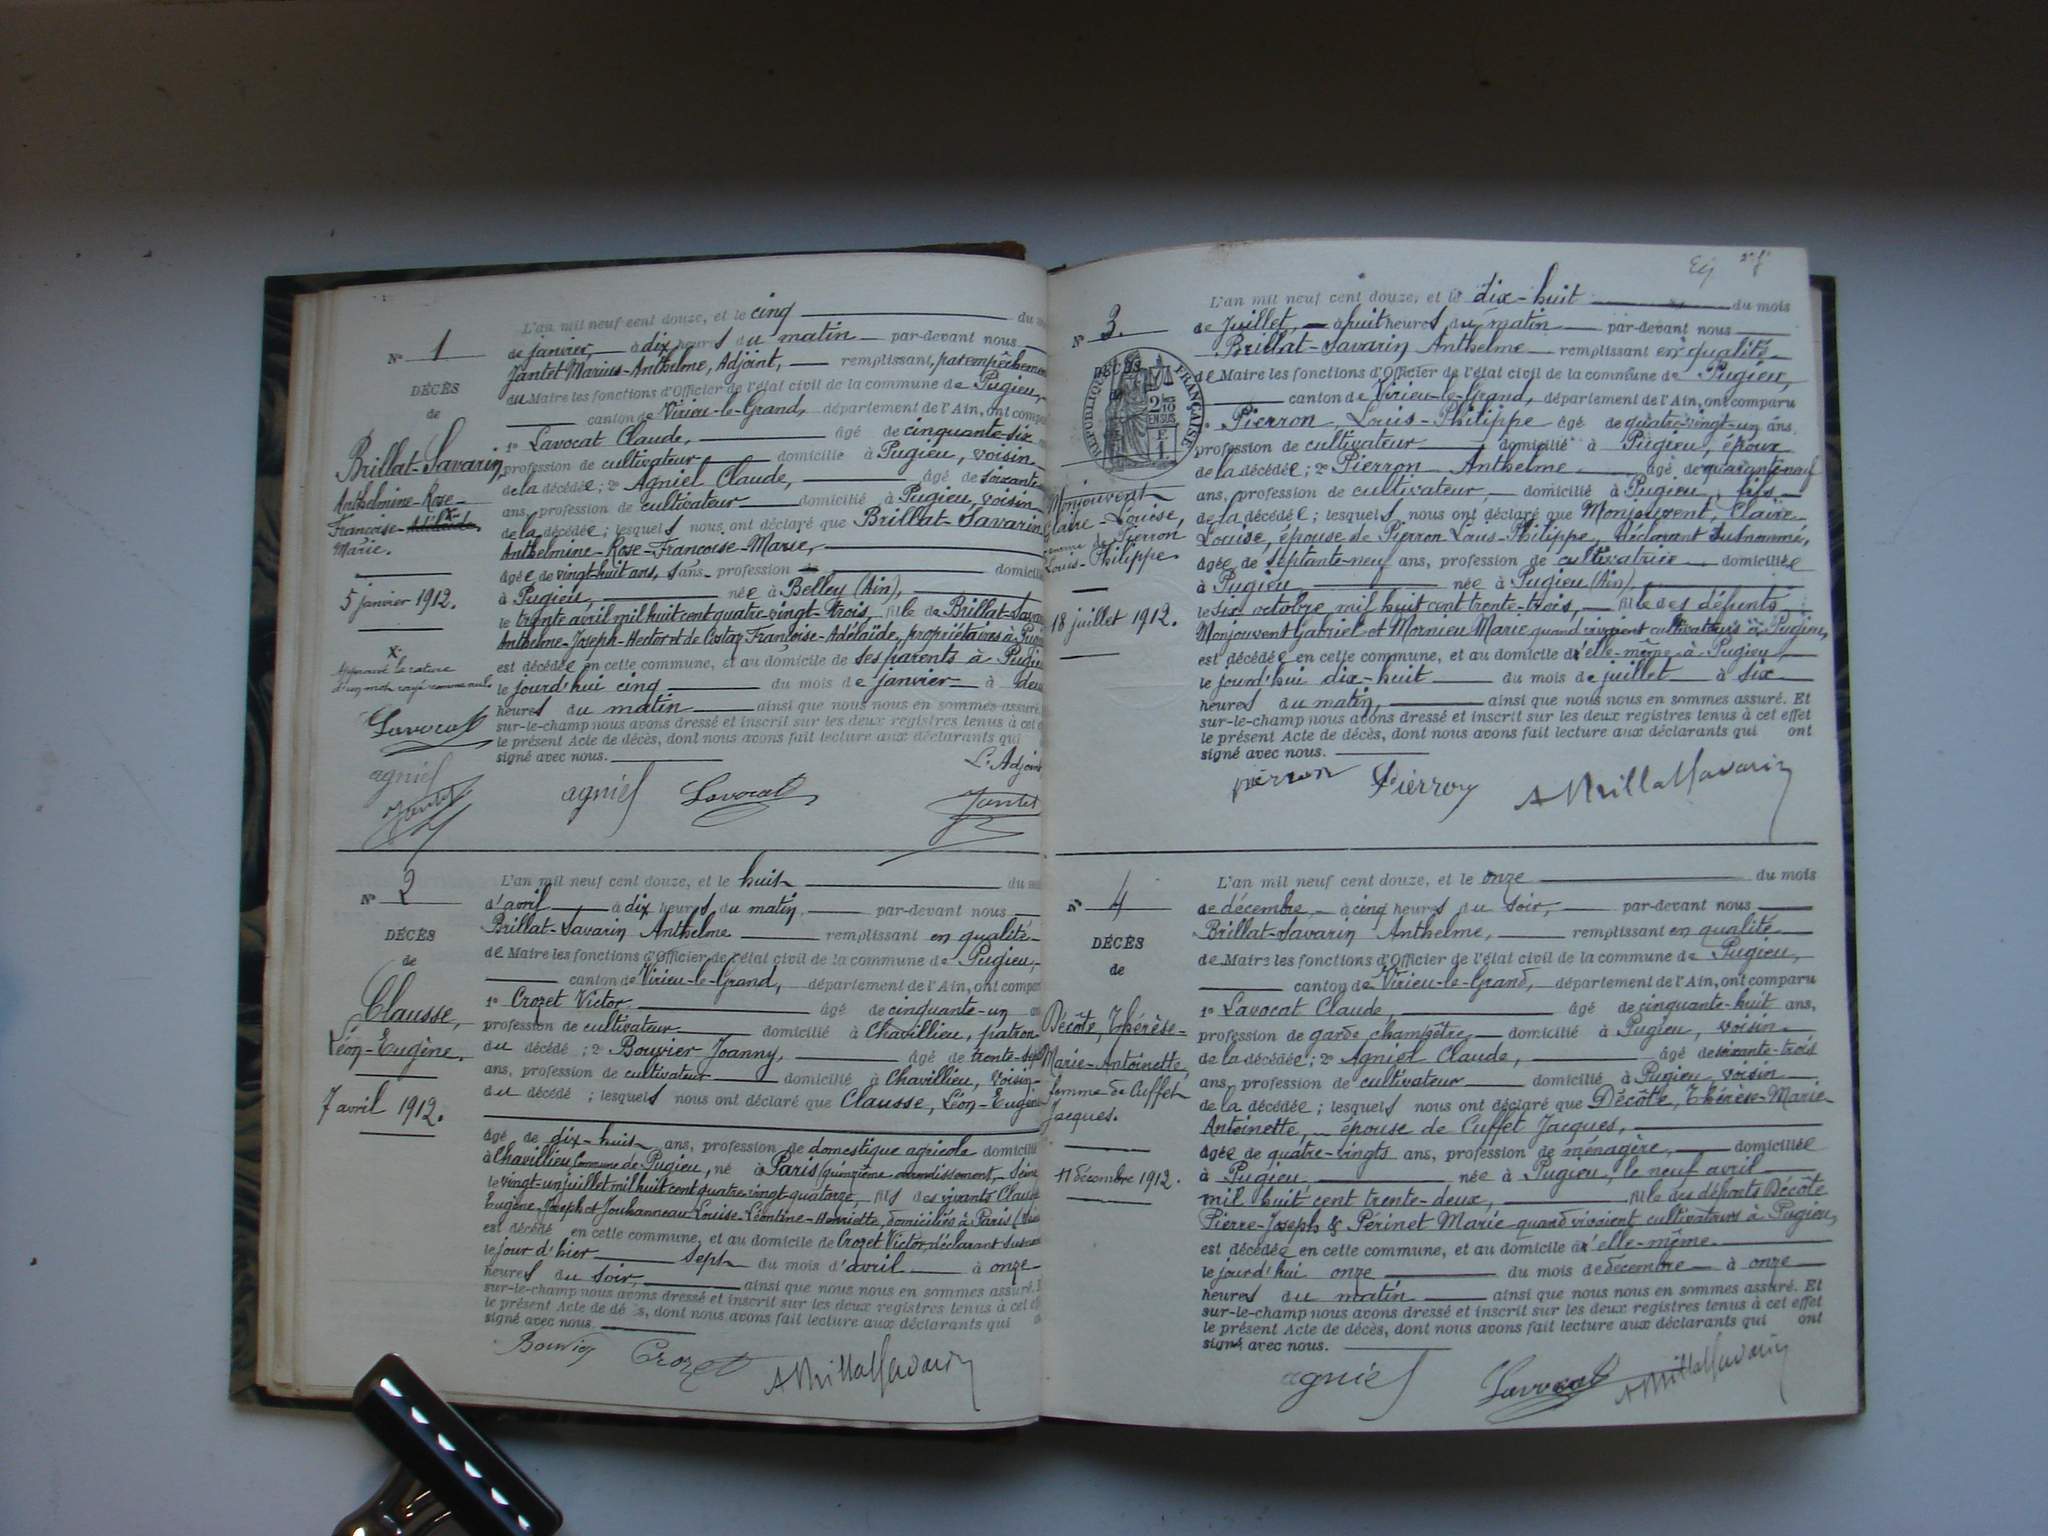 N° 1
DÉCÈS
de
Brillat-Savarin,
Anthelmine-Rose-
Françoise-Adélaïde x
Marie.
5 janvier 1912.
x.
Approuvé la rature
d'un mot rayé comme nul.
Lavocat
agniel
Jantet
L'an mil neuf cent douze, et le cinq du
de janvier, à dix heures du matin par-devant nous
Jantet Marius-Anthelme, Adjoint, remplissant, par empêchement
du Maire les fonctions d'Officier de l'état civil de la commune de Pugieu,
canton de Virieu-le-Grand, département de l'Ain, ont comparu
1° Lavocat Claude, âgé de cinquante-six
profession de cultivateur domicilié à Pugieu, voisin
de la décédée ; 2° Agniel Claude, âgé de soixante
ans, profession de cultivateur domicilié à Pugieu, voisin
de la décédée ; lesquels nous ont déclaré que Brillat-Savarin
Anthelmine-Rose-Françoise-Marie,
âgée de vingt-huit ans, sans profession domicili
à Pugieu, née à Belley (Ain),
le trente avril mil huit cent quatre-vingt-trois, fille de Brillat-Savar
Anthelme-Joseph-Hector et de Costaz Françoise-Adélaïde, propriétaires à Pugieu
est décédée en cette commune, et au domicile de ses parents à Pugieu
le jourd'hui cinq du mois de janvier à deux
heures du matin ainsi que nous nous en sommes assuré.
sur-le-champ nous avons dressé et inscrit sur les deux registres tenus à cet e
le présent Acte de décès, dont nous avons fait lecture aux déclarants qui
signé avec nous.
L'Adjoint
agniel Lavocat Jantet
N° 2
DÉCÈS
de
Clausse,
Léon-Eugène.
7 avril 1912.
L'an mil neuf cent douze, et le huit du
d'avril à dix heures du matin, par-devant nous
Brillat-Savarin Anthelme remplissant en qualité
de Maire les fonctions d'Officier de l'état civil de la commune de Pugieu,
canton de Virieu-le-Grand, département de l'Ain, ont compar
1° Crozet Victor âgé de cinquante-un
profession de cultivateur domicilié à Chavillieu, patron
du décédé ; 2° Bouvier Joanny, âgé de trente-sept
ans, profession de cultivateur domicilié à Chavillieu, voisin
du décédé ; lesquels nous ont déclaré que Clausse, Léon-Eugène
âgé de dix-huit ans, profession de domestique agricole domicilié
à Chavillieu Commune de Pugieu, né à Paris (quinzième arrondissement, Seine
le vingt-un juillet mil huit cent quatre-vingt-quatorze, fils des vivants Clausse
Eugène-Joseph et Jouhanneau Louise-Léontine-Henriette, domiciliés à Paris
est décédé en cette commune, et au domicile de Crozet Victor, déclarant susno
le jour d'hier sept du mois d'avril à onze
heures du soir, ainsi que nous nous en sommes assuré.
sur-le-champ nous avons dressé et inscrit sur les deux registres tenus à cet ef
le présent Acte de dé s, dont nous avons fait lecture aux déclarants qui
signé avec nous.
Bouvier Crozet ABrillatSavarin
2e f°
N° 3.
DÉCÈS
RÉPUBLIQUE FRANÇAISE
Monjouvent
Claire-Louise,
femme de Pierron
Louis-Philippe.
18 juillet 1912.
L'an mil neuf cent douze, et le dix-huit du mois
de Juillet, à huit heures du matin par-devant nous
Brillat-Savarin Anthelme remplissant en qualité
de Maire les fonctions d'Officier de l'état civil de la commune de Pugieu,
canton de Virieu-le-Grand, département de l'Ain, ont comparu
Pierron, Louis-Philippe âgé de quatre-vingt-un ans,
profession de cultivateur domicilié à Pugieu, époux
de la décédée ; 2° Pierron Anthelme âgé de quarante-neuf
ans, profession de cultivateur, domicilié à Pugieu, fils
de la décédée ; lesquels nous ont déclaré que Monjouvent, Claire-
Louise, épouse de Pierron Louis-Philippe, déclarant susnommé,
âgée de septante-neuf ans, profession de cultivatrice domiciliée
à Pugieu née à Pugieu (Ain),
le six octobre mil huit cent trente-trois, fille des défunts
Monjouvent Gabriel et Mornieu Marie quand vivaient cultivateurs à Pugieu,
est décédée en cette commune, et au domicile d'elle-même à Pugieu,
le jourd'hui dix-huit du mois de juillet à six
heures du matin, ainsi que nous nous en sommes assuré. Et
sur-le-champ nous avons dressé et inscrit sur les deux registres tenus à cet effet
le présent Acte de décès, dont nous avons fait lecture aux déclarants qui ont
signé avec nous.
pierron Pierron ABrillatSavarin
N° 4
DÉCÈS
de
Décôte, Thérèse-
Marie-Antoinette,
femme de Cuffet
Jacques.
11 décembre 1912.
L'an mil neuf cent douze, et le onze du mois
de décembre, à cinq heures du soir, par-devant nous
Brillat-Savarin Anthelme, remplissant en qualité
de Maire les fonctions d'Officier de l'état civil de la commune de Pugieu,
canton de Virieu-le-Grand, département de l'Ain, ont comparu
1° Lavocat Claude, âgé de cinquante-huit ans,
profession de garde champêtre, domicilié à Pugieu, voisin
de la décédée ; 2° Agniel Claude, âgé de soixante-trois
ans, profession de cultivateur domicilié à Pugieu, voisin
de la décédée ; lesquels nous ont déclaré que Décôte, Thérèse-Marie-
Antoinette, épouse de Cuffet Jacques,
âgée de quatre-vingts ans, profession de ménagère, domiciliée
à Pugieu, née à Pugieu, le neuf avril
mil huit cent trente-deux, fille des défunts Décôte
Pierre-Joseph & Périnet Marie quand vivaient cultivateurs à Pugieu,
est décédée en cette commune, et au domicile d'elle-même.
le jourd'hui onze du mois de décembre à onze
heures du matin ainsi que nous nous en sommes assuré. Et
sur-le-champ nous avons dressé et inscrit sur les deux registres tenus à cet effet
le présent Acte de décès, dont nous avons fait lecture aux déclarants qui ont
signé avec nous.
agniel Lavocat ABrillatSavarin